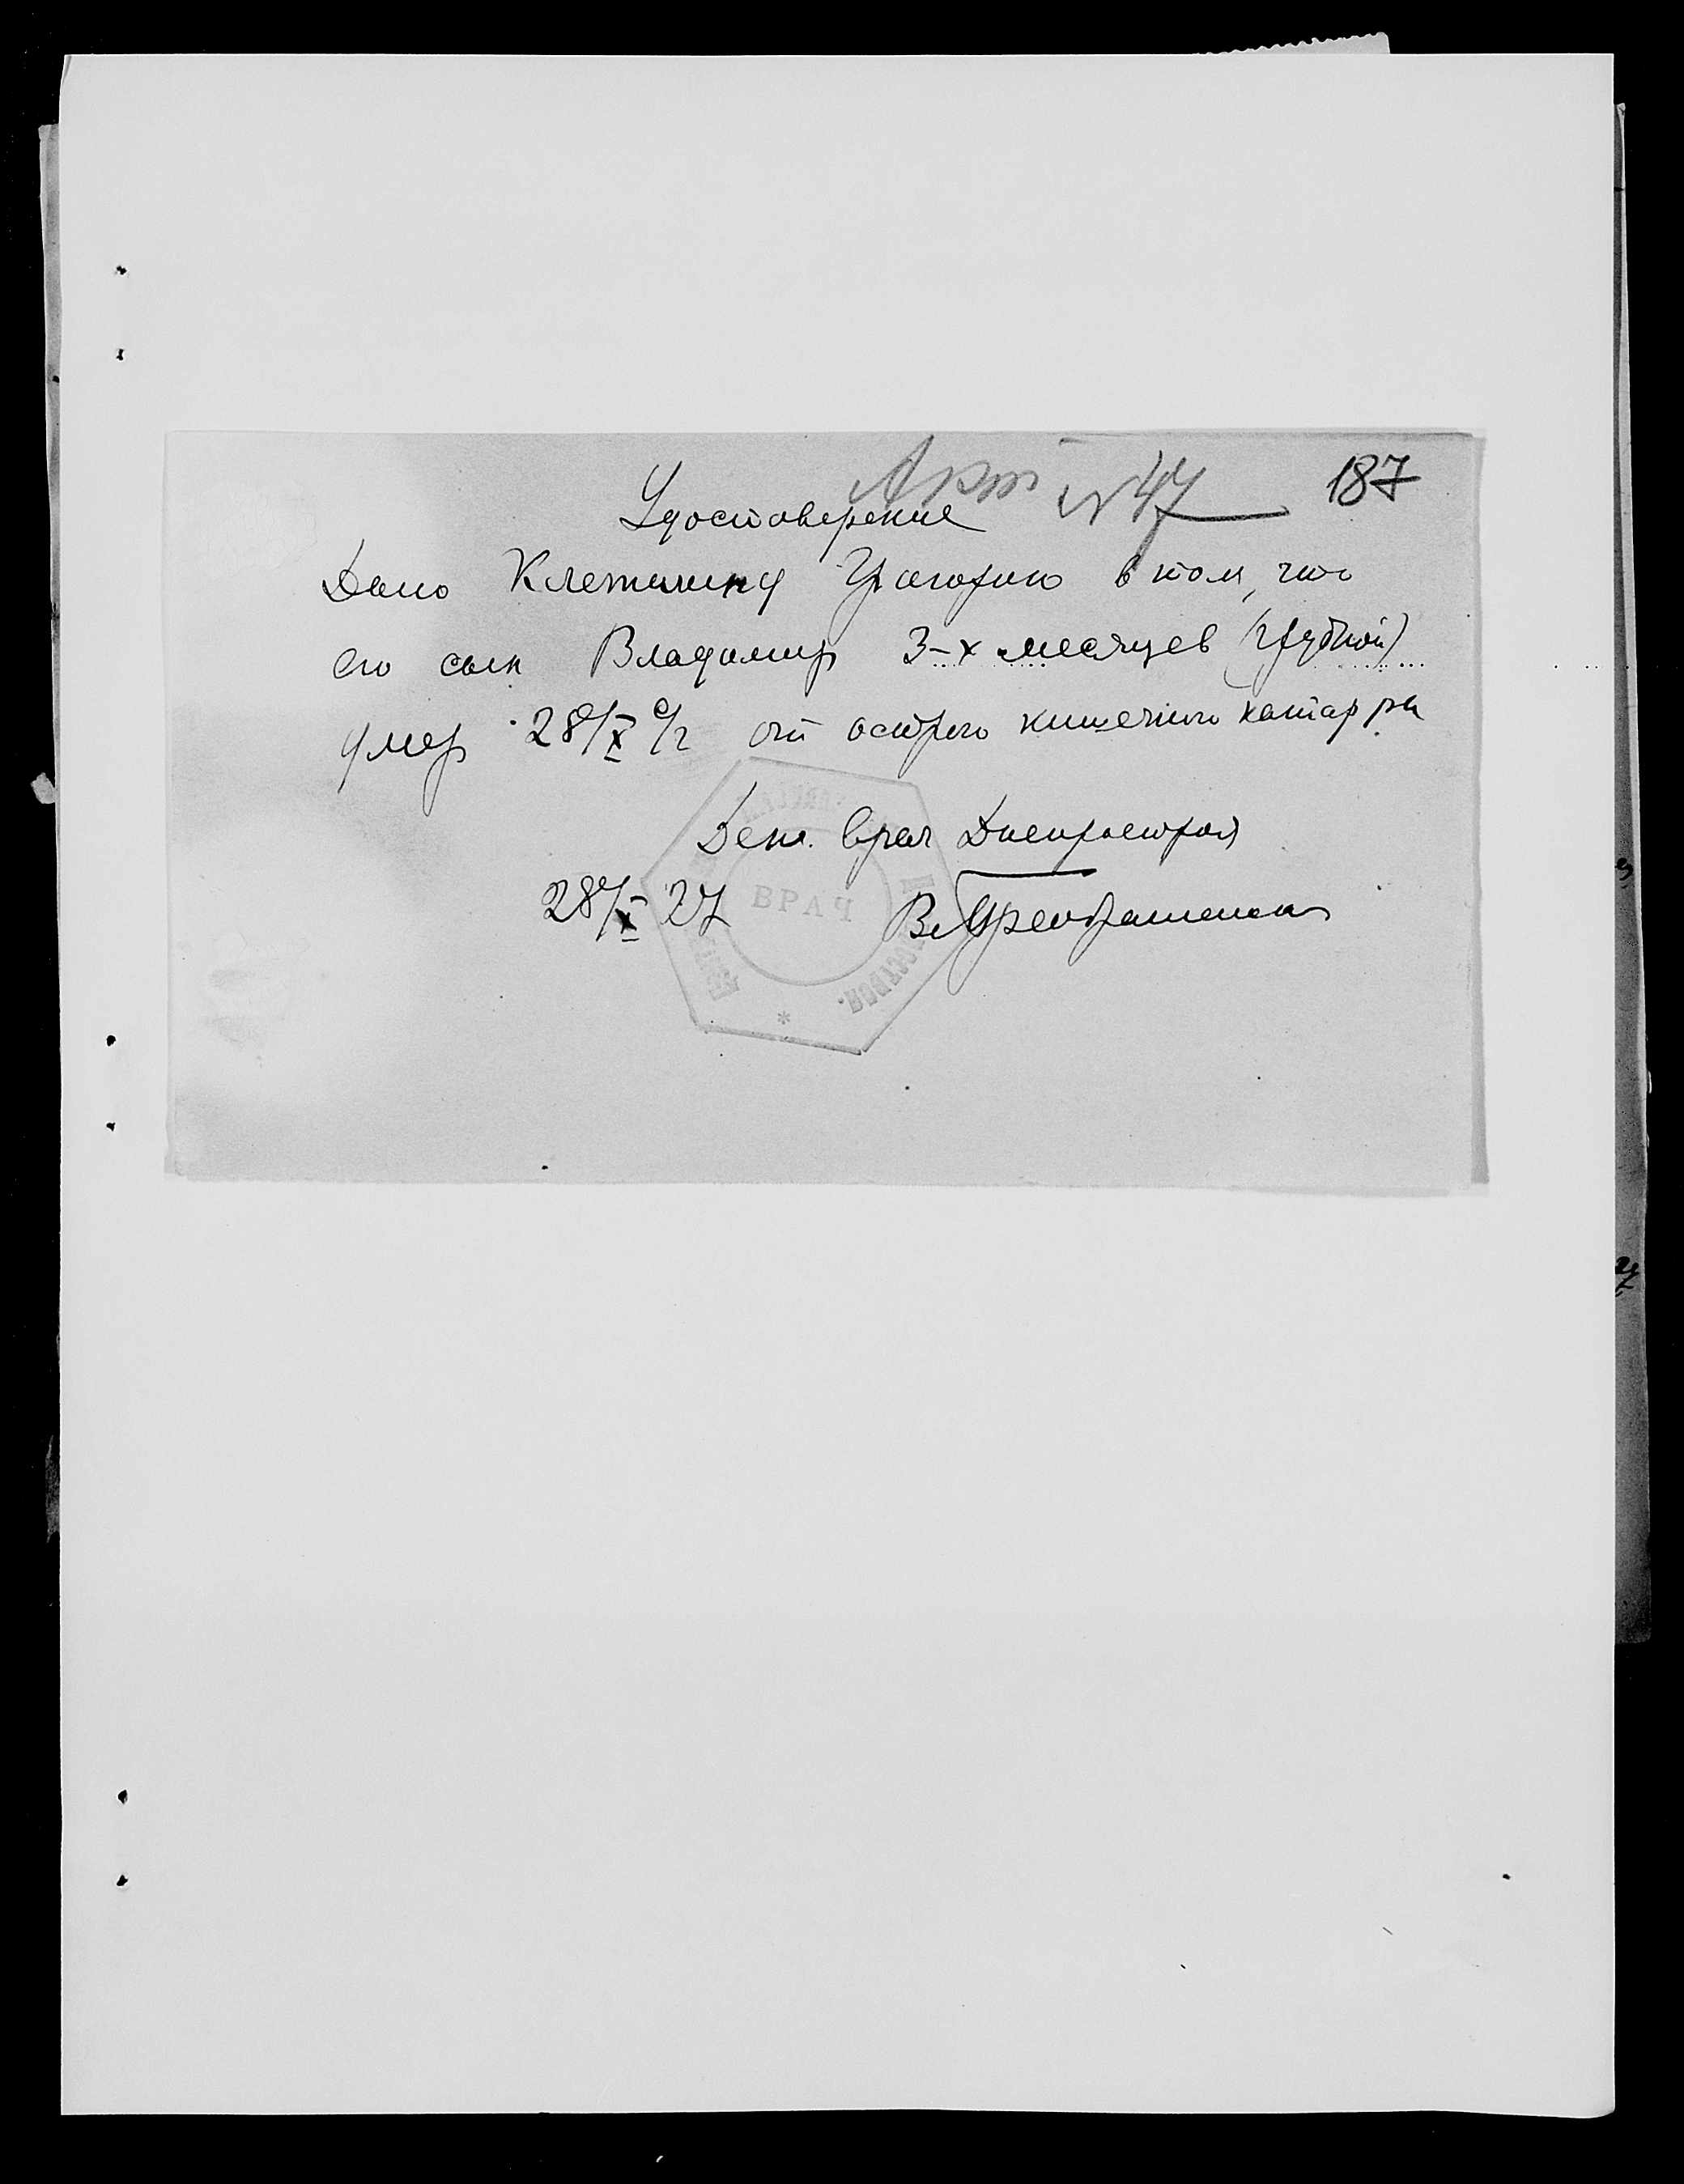 Акт №47 187
Удостоверение
Дано Клетилину Григорию в том, что
его сын Владимир 3-х месяцев (грудной)
умер 28/X с/г от острого кишечного катарра
Деж. врач Днепростроя
28/X 27 В. Преображенская
ВРАЧ